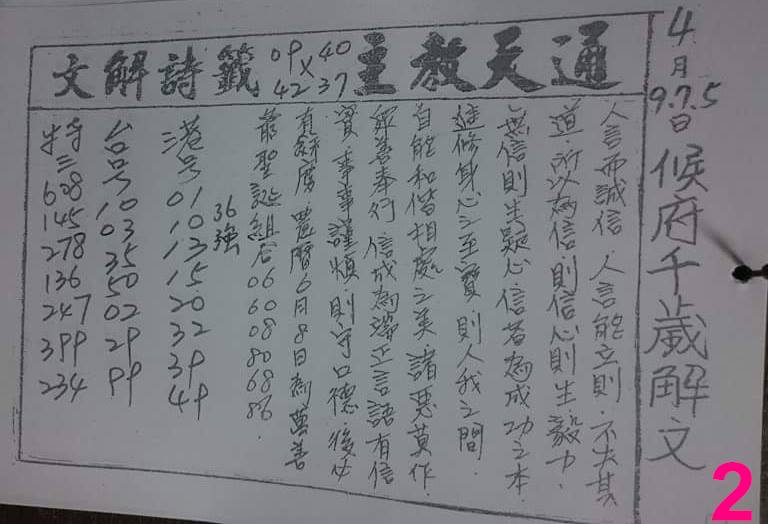 4月9.7.5日候府千歲解文
通天教主 40 37 × 09 42 籤詩解文
人言而誠信.人言能立則.不失其
道.所以為信.則信心則生毅力.
無信則生疑心信者為成功之本
進修身心之至寶 則人我之間.
自能和偕相處之美.諸惡莫作.
眾善奉行 信成為端正言語有信
實 事事謹慎則守口德後必
有餘慶 農曆6月8日為萬善
爺聖誕組合 06 60 08 80 68 86.
36強
港号 01 10 13 15 20 32 39 49
台号 10 03 35 50 02 29 99
特三 608 145 278 136 247 399 234
2